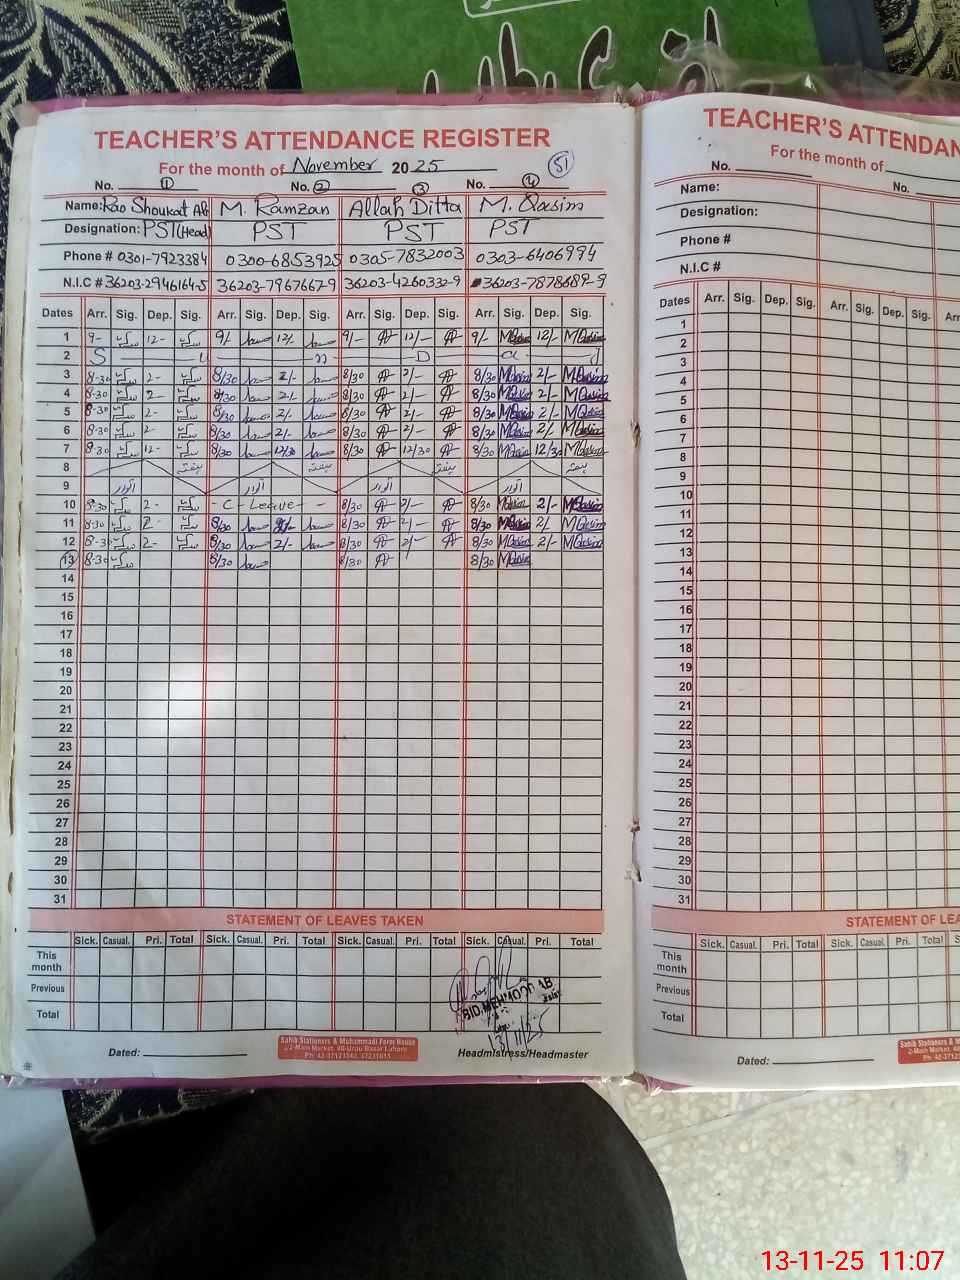 TEACHER'S ATTENDANCE REGISTER
For the month of November 2025
51
No. 1 No. 2 3 No. 4
Name: Rao Shoukat Ali M. Ramzan Allah Ditta M. Qasim
Designation: PST(Head) PST PST PST
Phone # 0301-7923384 0300-6853925 0305-7832003 0303-6406994
N.I.C # 36203-2946164-5 36203-7967667-9 36203-4260332-9 36203-7878689-9
Dates Arr. Sig. Dep. Sig. Arr. Sig. Dep. Sig. Arr. Sig. Dep. Sig. Arr. Sig. Dep. Sig.
1 9- 12- 9/- 12/- 9/- 12/- 9/- MQasim 12/- MQasim
2 S u n D a y
3 8-30 2- 8/30 2/- 8/30 2/- 8/30 MQasim 2/- MQasim
4 8-30 2- 8/30 2/- 8/30 2/- 8/30 MQasim 2/- MQasim
5 8-30 2- 8/30 2/- 8/30 2/- 8/30 MQasim 2/- MQasim
6 8-30 2- 8/30 2/- 8/30 2/- 8/30 MQasim 2/- MQasim
7 8-30 12- 8/30 12/30 8/30 12/30 8/30 MQasim 12/30 MQasim
8 ہفتہ ہفتہ ہفتہ ہفتہ
9 اتوار اتوار اتوار
10 8-30 2- - C - Leave - 8/30 2/- 8/30 MQasim 2/- MQasim
11 8-30 2- 8/30 8/30 2/- 8/30 MQasim 2/- MQasim
12 8-30 2- 8/30 2/- 8/30 2/- 8/30 MQasim 2/- MQasim
13 8-30 8/30 8/30 8/30 MQasim
14
15
16
17
18
19
20
21
22
23
24
25
26
27
28
29
30
31
STATEMENT OF LEAVES TAKEN
Sick. Casual. Pri. Total Sick. Casual. Pri. Total Sick. Casual. Pri. Total Sick. Casual. Pri. Total
This month
Previous
Total
BID MEHMOOD AB
13/11/25
Dated:
Sahib Stationers & Muhammadi Form House
2-Main Market, 40-Urdu Bazar Lahore
Headmistress/Headmaster
TEACHER'S ATTENDAN
For the month of
No. No.
Name:
Designation:
Phone #
N.I.C #
Dates Arr. Sig. Dep. Sig. Arr. Sig. Dep. Sig. Arr
1
2
3
4
5
6
7
8
9
10
11
12
13
14
15
16
17
18
19
20
21
22
23
24
25
26
27
28
29
30
31
STATEMENT OF LEA
Sick. Casual. Pri. Total Sick. Casual. Pri. Total S
This month
Previous
Total
Dated:
Sahib Stationers & M
2-Main Market,
13-11-25 11:07